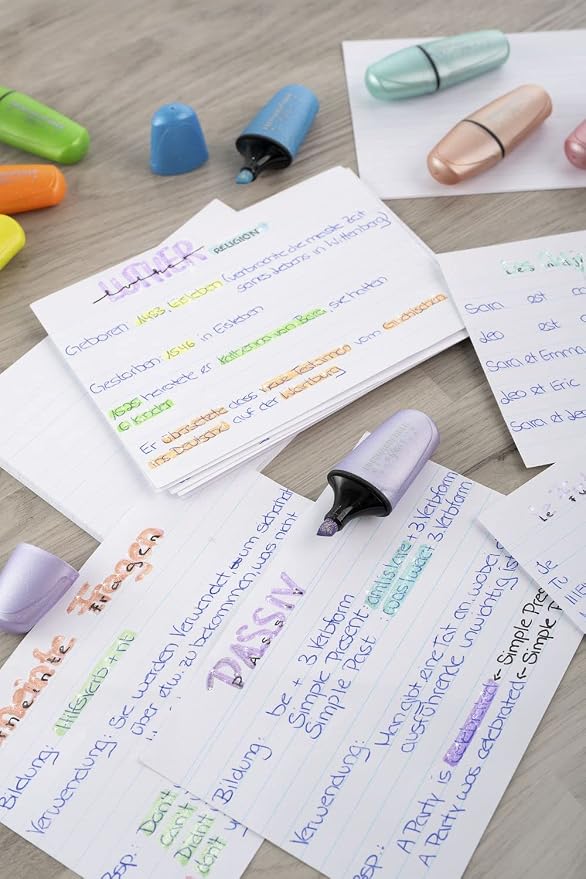 LUTHER
Luther
RELIGION
Geboren: 1483, Eisleben (verbrachte die meiste Zeit
seines Lebens in Wittenberg)
Gestorben: 1546 in Eisleben
1525 heiratete er Katharina von Bora, sie hatten
6 Kinder
Er übersetzte dass neue Testament vom Griechischen
ins Deutsche auf der Wartburg
Des Adj
Sara est
Leo est
Sara et Emma
Leo et Eric
Sara et Leo
Le
Je
Tu
neinte Fragen
neinte Fragen
Bildung: Hilfsverb + n't
Verwendung: Sie werden Verwendet um
über etw. zu bekommen was nicht
Bsp.: Don't
Can't
Didn't
don't
PASSIV
PASSIV
Bildung: be + 3 Verbform
Simple Present: am/is/are + 3 Verbform
Simple Past: was/were + 3 Verbform
Verwendung: Man gibt eine Tat an, wobei
ausführende unwichtig is
Bsp.: A Party is celebrated ← Simple Pres
A Party was celebrated ← Simple